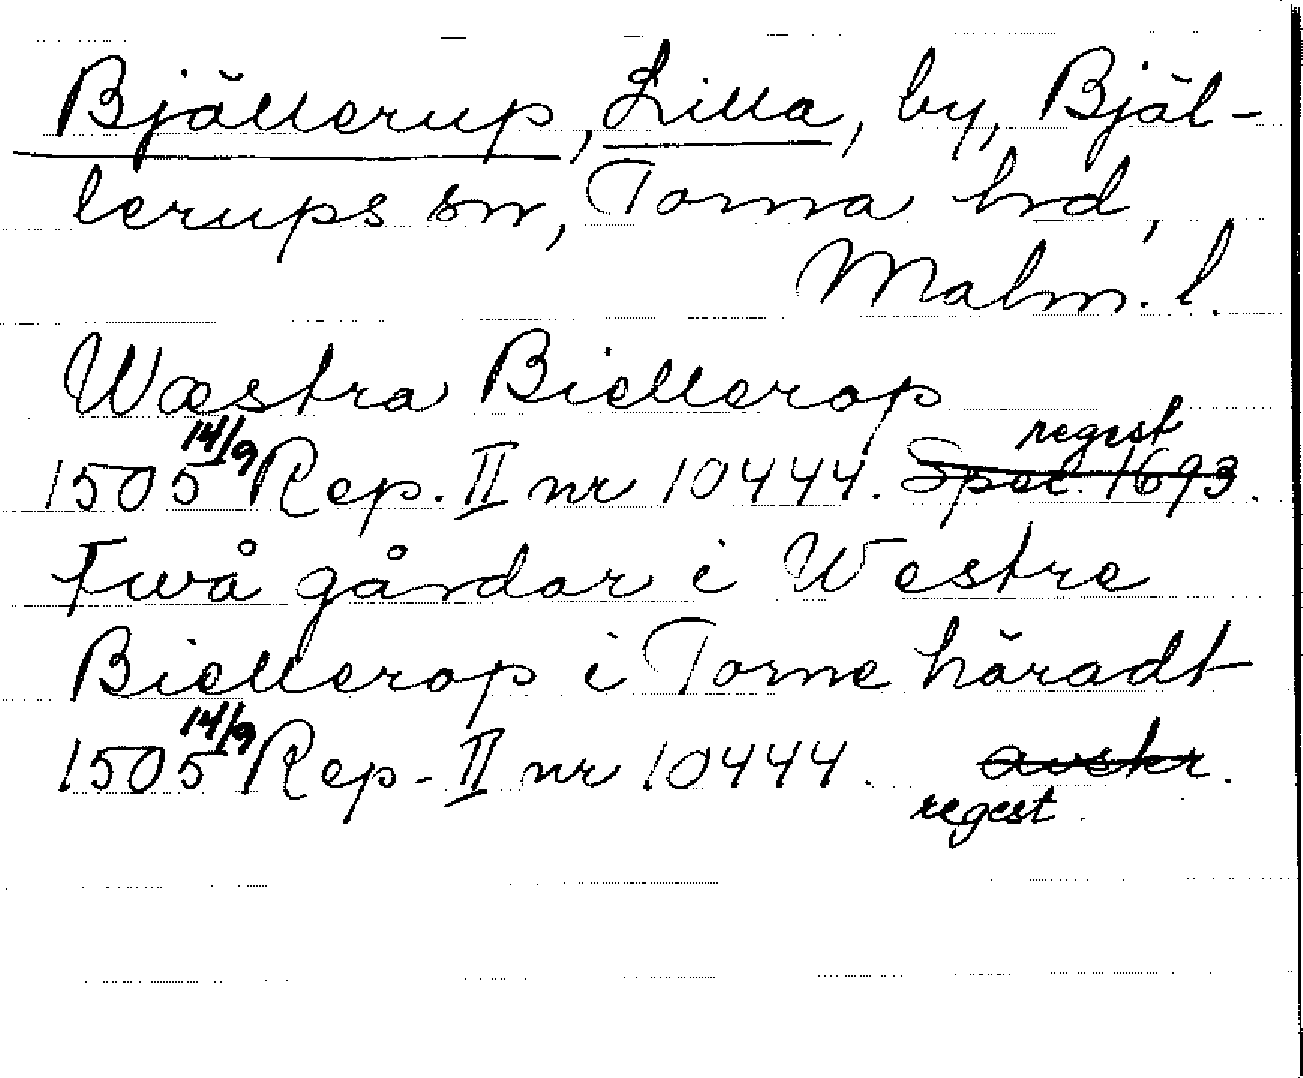 Bjällerup, Lilla, by, Bjäl-
lerups sn, Torna hrd,
Malm. l.
Wæstra Biellerop
1505 14/9 Rep. II nr 10444. Spec. 1693. regest
Twå gårdar i Westre
Biellerop i Torne häradt
1505 14/9 Rep. II nr 10444. avskr.
regest.